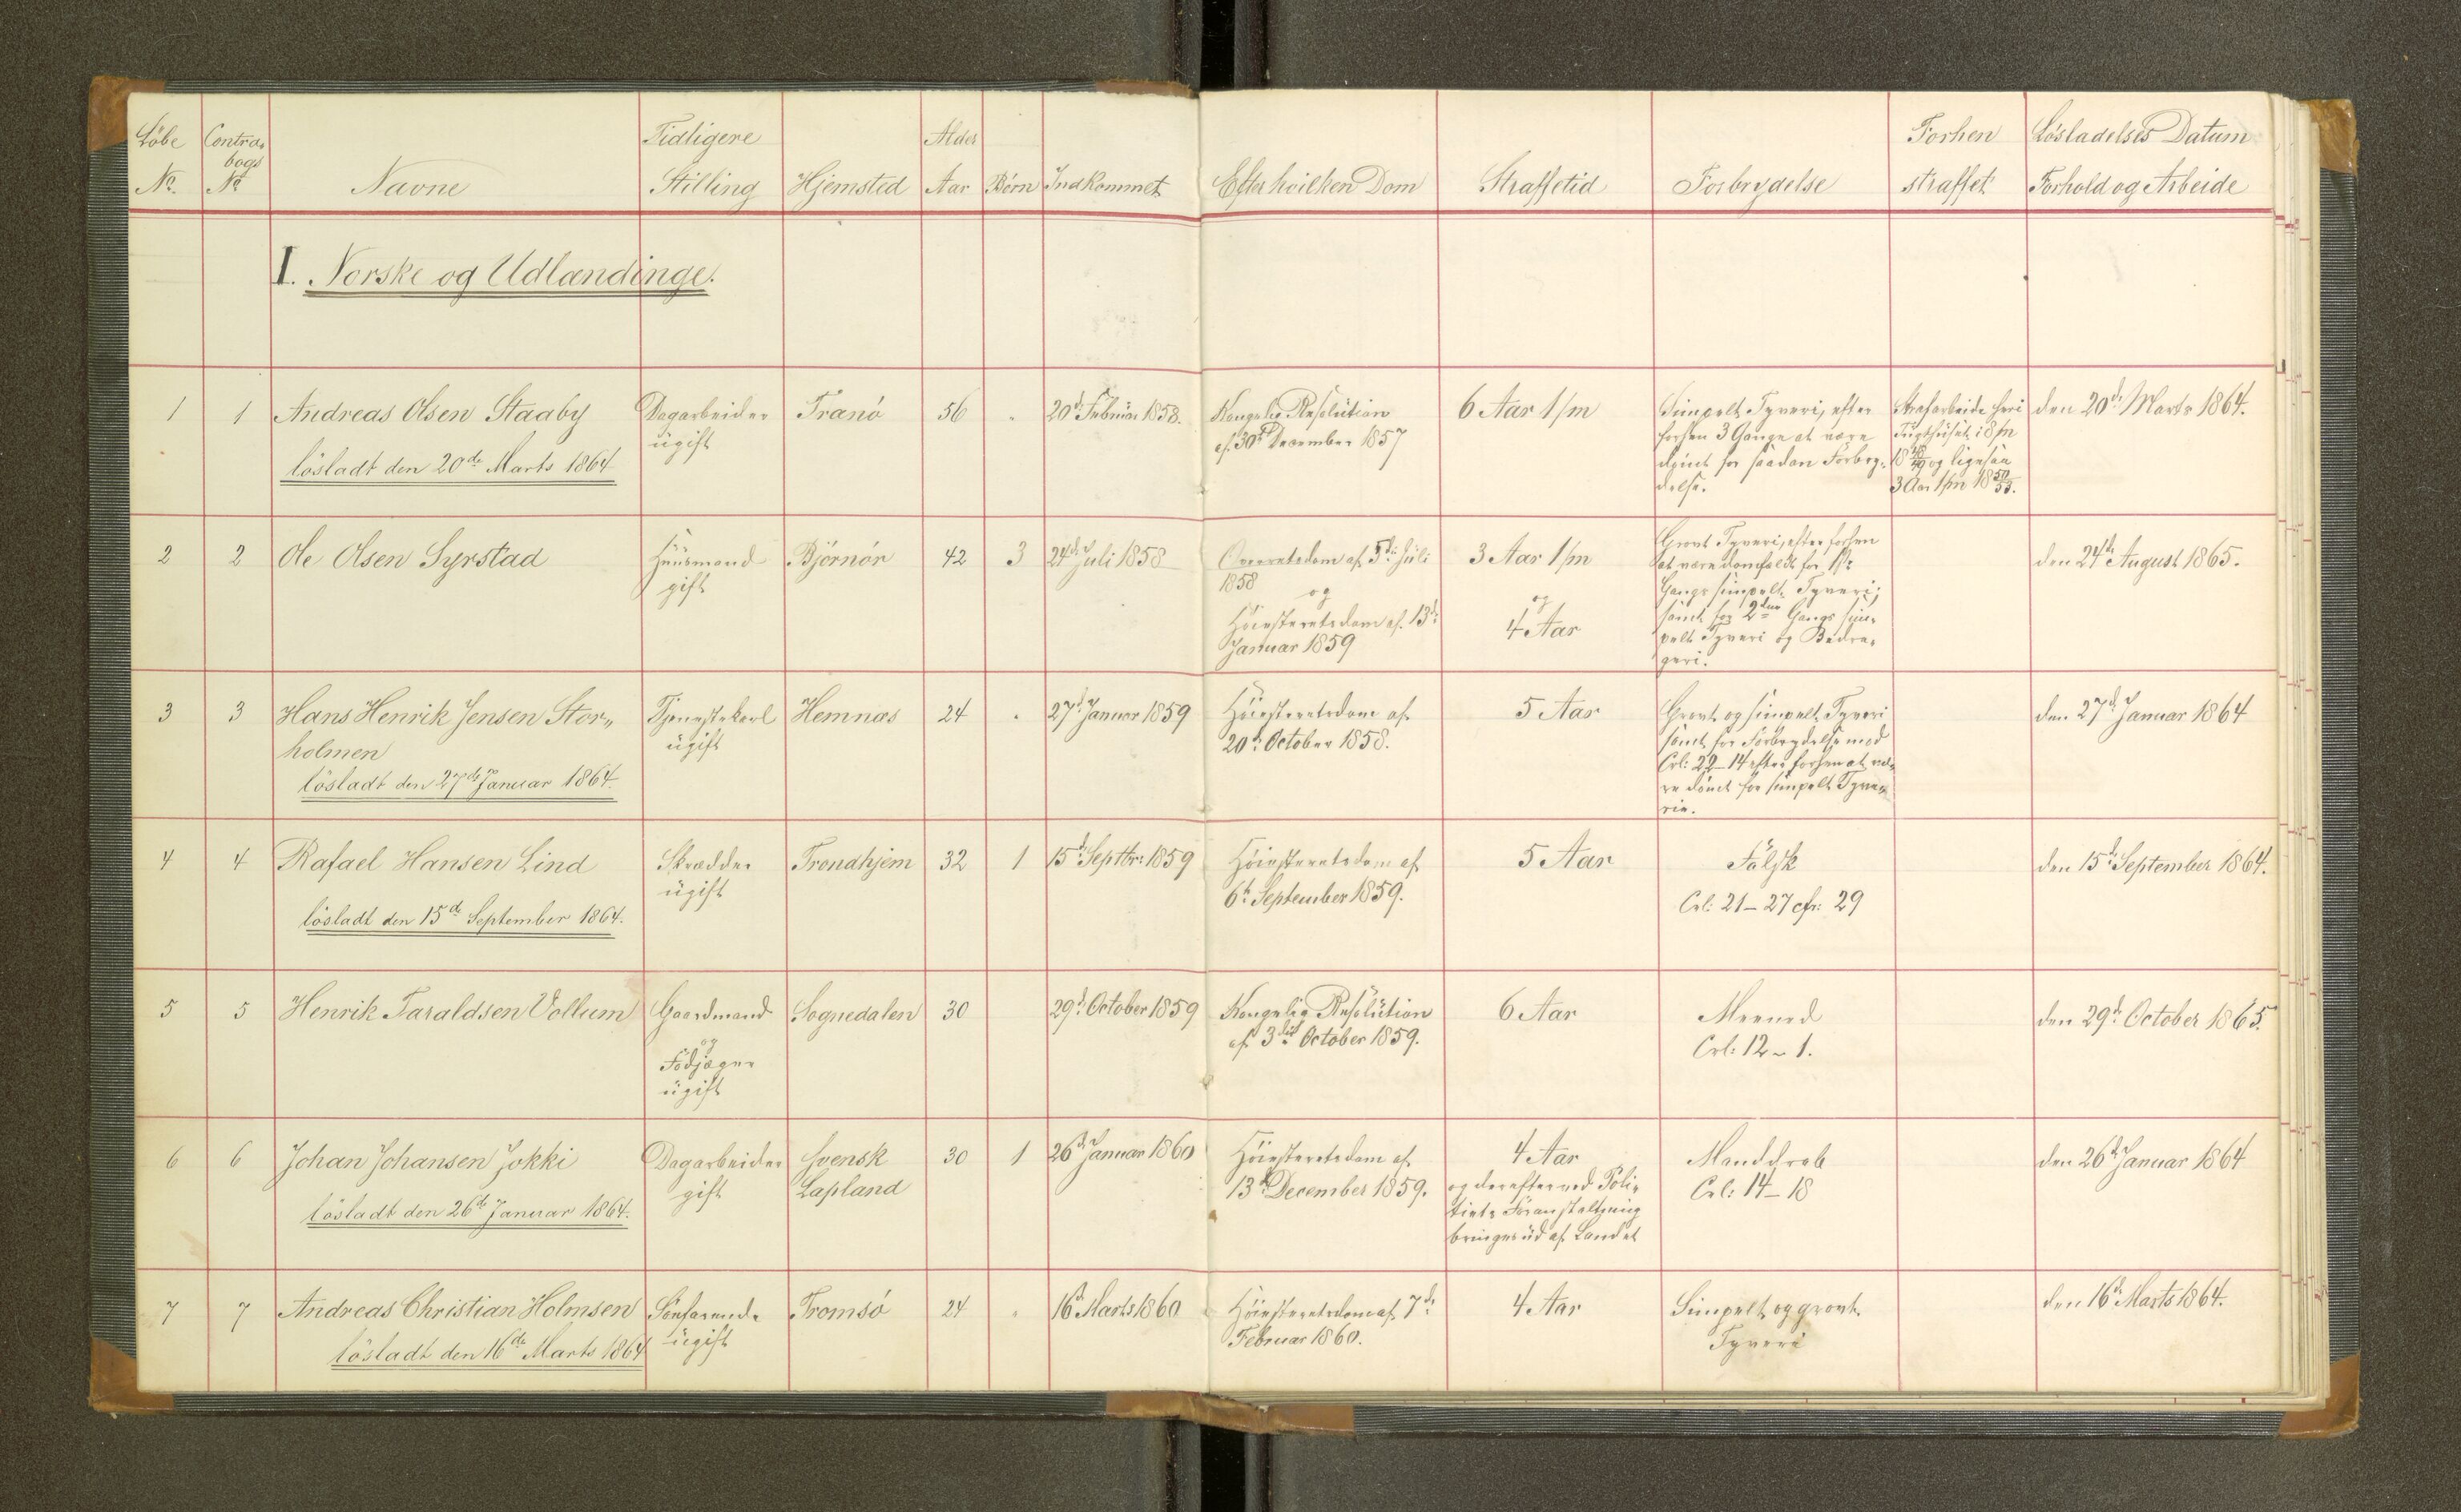 Löbe No.
Contra-bogs No
Navne
Tidligere Stilling
Hjemsted
Alder Aar
Börn
Indkommet
Efter hvilken Dom
Straffetid
Forbrydelse
Forhen straffet
Lösladelses Datum
Forhold og Arbeide
I. Norske og Udlændinge.
1
1
Andreas Olsen Staaby
lösladt den 20de Marts 1864
Dagarbeider
ugift
Tranö
56
"
20d Februar 1858.
Kongelig Resolution
af 30te December 1857
6 Aar 1/m
Simpelt Tyveri, efter
forhen 3 Gange at være
dömt for saadan Forbry-
delse.
Strafarbeide heri
Tugthuset i 8/m
18 48/49 og ligesaa
3 Aar 1/m 18 50/53.
den 20de Marts 1864.
2
2
Ole Olsen Syrstad
Huusmand
gift
Björnör
42
3
24de Juli 1858
Overretsdom af 5te Juli
1858
og
Höiesteretsdom af 13de
Januar 1859
3 Aar 1/m
og
4 Aar
Grovt Tyveri, efter forhen
at være domfældt for 1ste
Gangs simpelt Tyveri;
samt for 2den Gangs sim-
pelt Tyveri og Bedra-
geri.
den 24de August 1865.
3
3
Hans Henrik Jensen Stor-
holmen
lösladt den 27de Januar 1864.
Tjenestekarl
ugift
Hemnæs
24
"
27d Januar 1859
Höiesteretsdom af
20de October 1858.
5 Aar
Grovt og simpelt Tyveri
samt for Forbrydelse mod
Crl: 22-14 efter forhen at væ-
re dömt for simpelt Tyve-
rie.
den 27d Januar 1864
4
4
Rafael Hansen Lind
lösladt den 15de September 1864.
Skrædder
ugift
Trondhjem
32
1
15d Septbr: 1859
Höiesteretsdom af
6te September 1859.
5 Aar
Falsk
Crl: 21-27 cfr: 29
den 15de September 1864.
5
5
Henrik Taraldsen Vollum
Gaardmand
og
Fodjæger
ugift
Sognedalen
30
29d October 1859
Kongelig Resolution
af 3die October 1859.
6 Aar
Meened
Crl: 12-1.
den 29d October 1865.
6
6
Johan Johansen Jokki
lösladt den 26de Januar 1864.
Dagarbeider
gift
Svensk
Lapland
30
1
26d Januar 1860
Höiesteretsdom af
13d December 1859.
4 Aar
og derefter ved Poli-
tiets Foranstaltning
bringes ud af Landet
Manddrab
Crl: 14-18
den 26d Januar 1864
7
7
Andreas Christian Holmsen
lösladt den 16de Marts 1864
Söefarende
ugift
Tromsö
24
"
16d Marts 1860
Höiesteretsdom af 7de
Februar 1860.
4 Aar
Simpelt og grovt
Tyveri
den 16d Marts 1864.